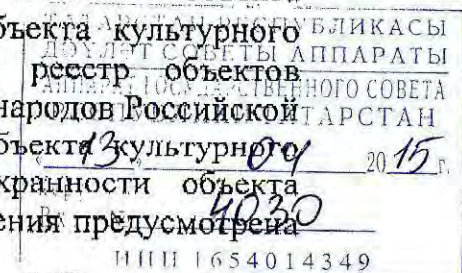 бъекта культурного
реестр объектов
народов Российской
бъекта культурного
хранности объекта
ения предусмотрена
ТАТАРСТАН РЕСПУБЛИКАСЫ
ДӘҮЛӘТ СОВЕТЫ АППАРАТЫ
АППАРАТ ГОСУДАРСТВЕННОГО СОВЕТА
ТАТАРСТАН
«13» 04 2015 г.
4030
ИНН 1654014349